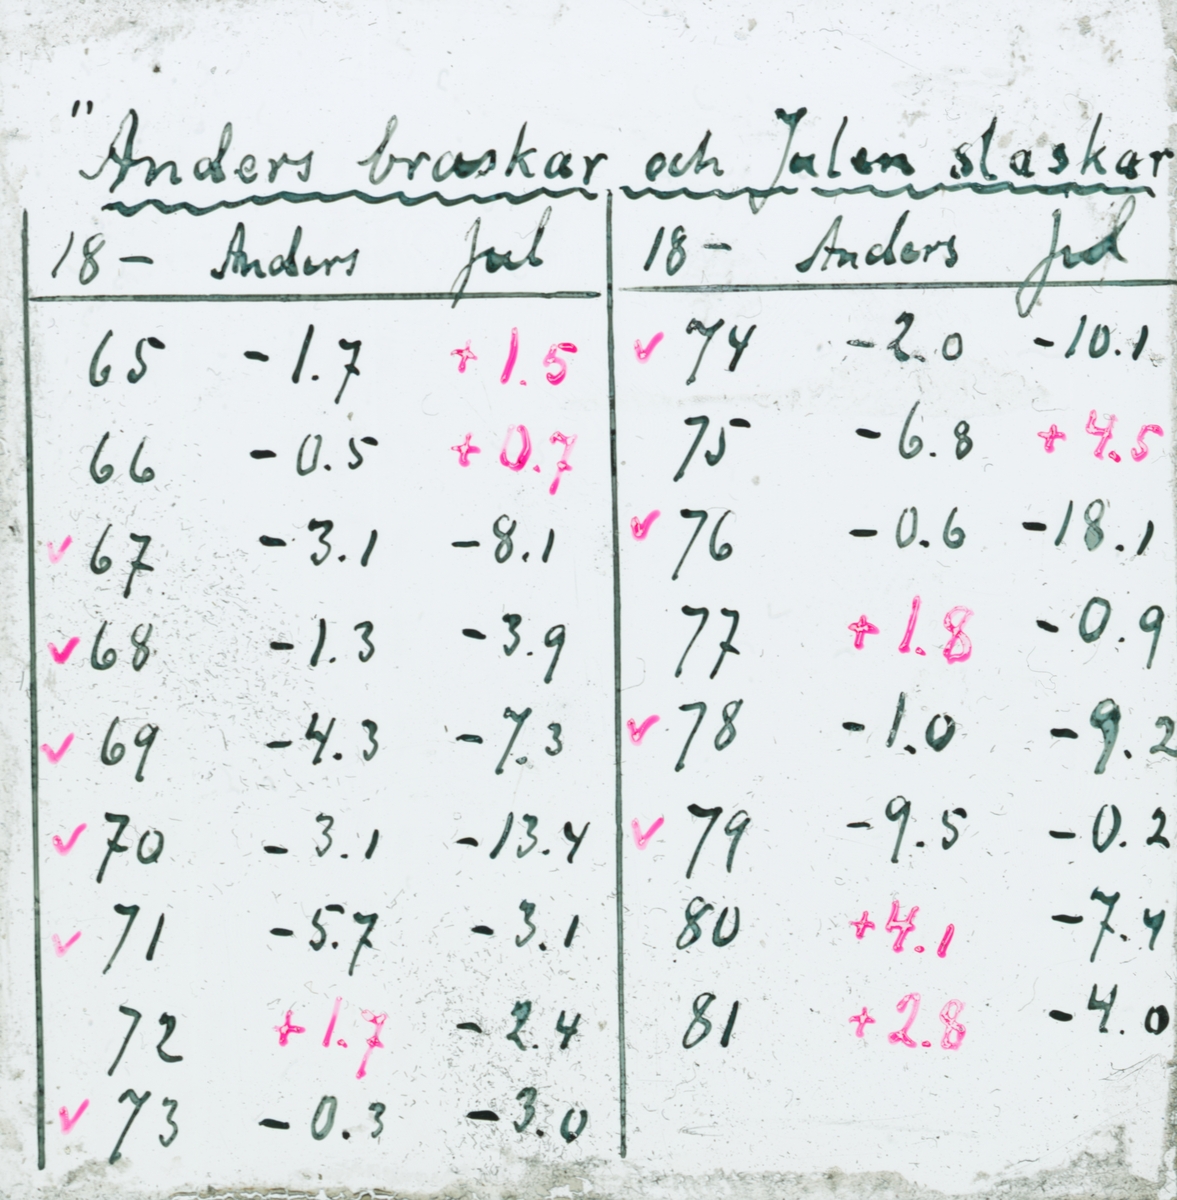 "Anders braskar och Julen slaskar
18- Anders Jul
65 -1.7 +1.5
66 -0.5 +0.7
✓ 67 -3.1 -8.1
✓ 68 -1.3 -3.9
✓ 69 -4.3 -7.3
✓ 70 -3.1 -13.4
✓ 71 -5.7 -3.1
72 +1.7 -2.4
✓ 73 -0.3 -3.0
18- Anders Jul
✓ 74 -2.0 -10.1
75 -6.8 +4.5
✓ 76 -0.6 -18.1
77 +1.8 -0.9
✓ 78 -1.0 -9.2
✓ 79 -9.5 -0.2
80 +4.1 -7.4
81 +2.8 -4.0